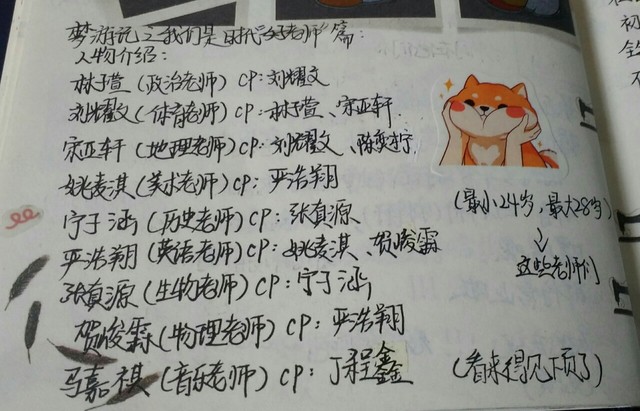 梦游记之我们是时代"好老师"篇:
人物介绍:
林子萱(政治老师)CP:刘耀文
刘耀文(体育老师)CP:林子萱、宋亚轩
宋亚轩(地理老师)CP:刘耀文、陈奕柠
姚麦淇(美术老师)CP:严浩翔
宁于涵(历史老师)CP:张真源
严浩翔(英语老师)CP:姚麦淇、贺峻霖
张真源(生物老师)CP:宁于涵
贺俊霖(物理老师)CP:严浩翔
马嘉祺(音乐老师)CP:丁程鑫
(最小24岁,最大28岁)
↓
这些老师们
(看来得见下页了)